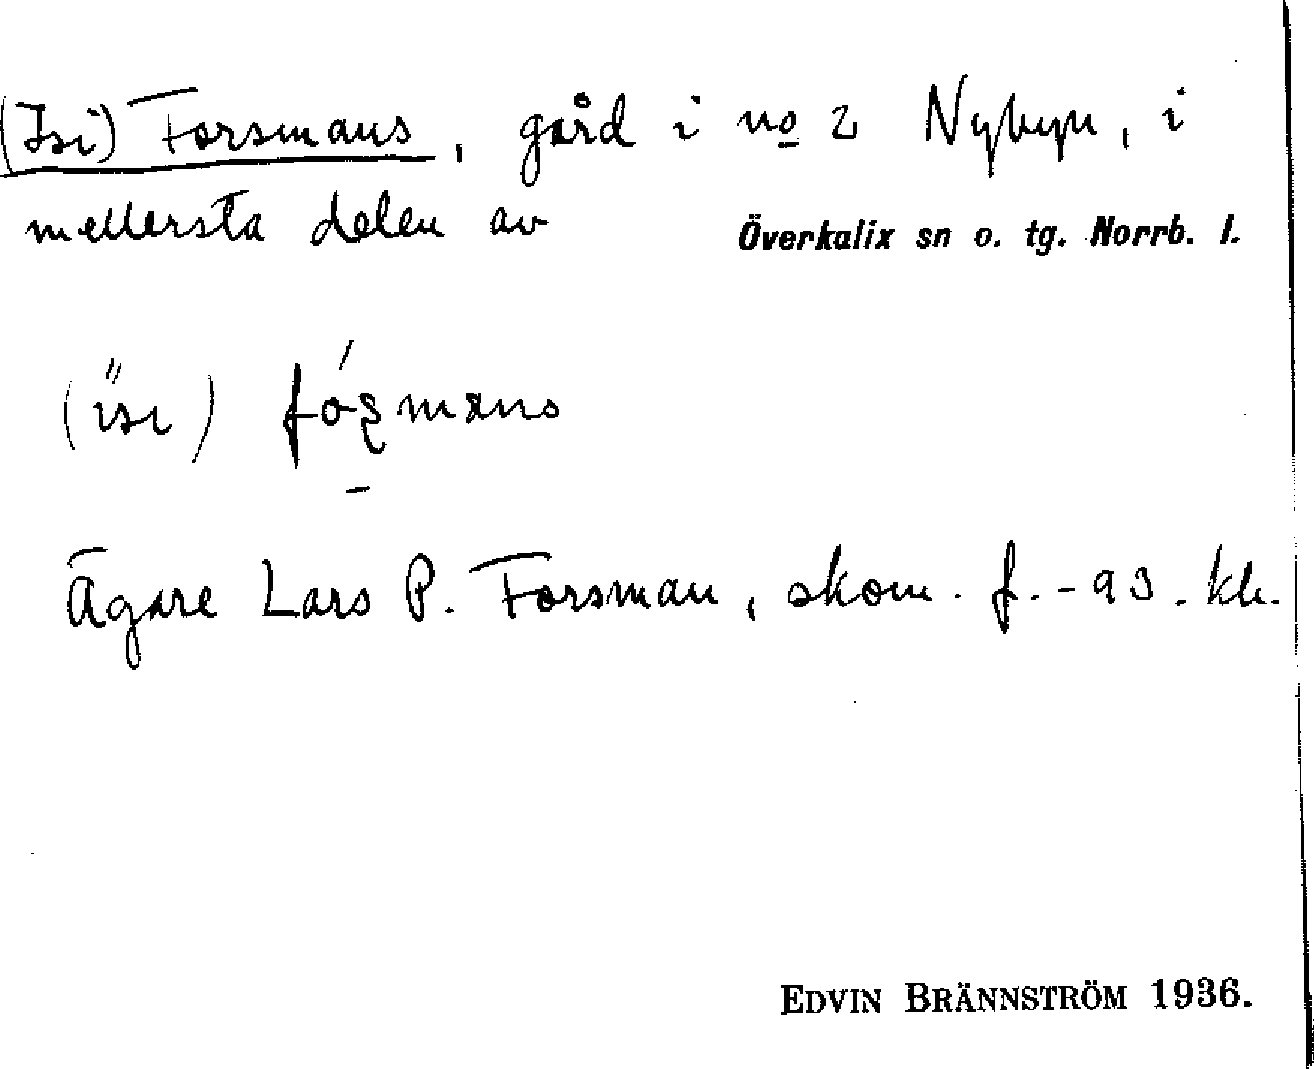 (Isi) Forsmans, gård i no 2 Nybyn, i
mellersta delen av Överkalix sn o. tg. Norrb. l.
Ägare Lars P. Forsman, skom. f. -93. kh.
EDVIN BRÄNNSTRÖM 1936.